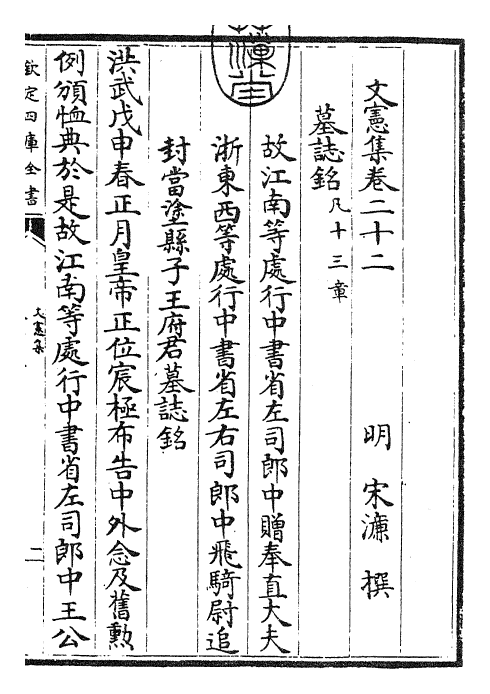 文憲集卷二十二
明 宋濂 撰
墓誌銘凡十三章
故江南等處行中書省左司郎中贈奉直大夫
浙東西等處行中書省左右司郎中飛騎尉追
封當塗縣子王府君墓誌銘
洪武戊申春正月皇帝正位宸極布告中外念及舊勲
例頒恤典於是故江南等處行中書省左司郎中王公
欽定四庫全書
文憲集
二